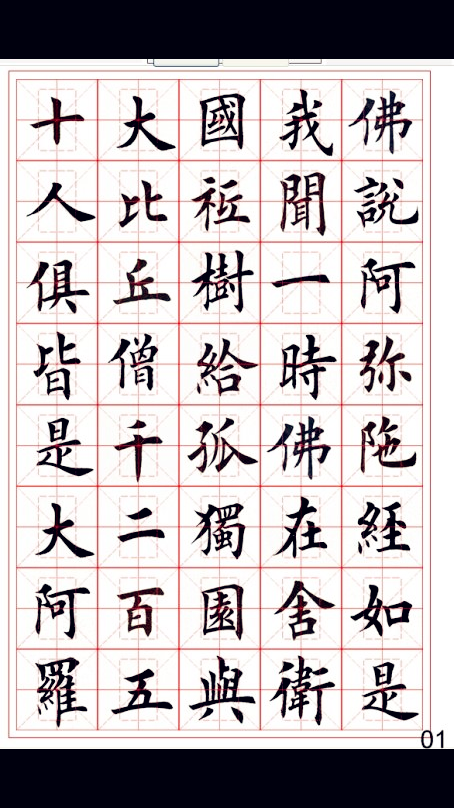 佛說阿弥陁經如是
我聞一時佛在舍衛
國祇樹給孤獨園與
大比丘僧千二百五
十人俱皆是大阿羅
01